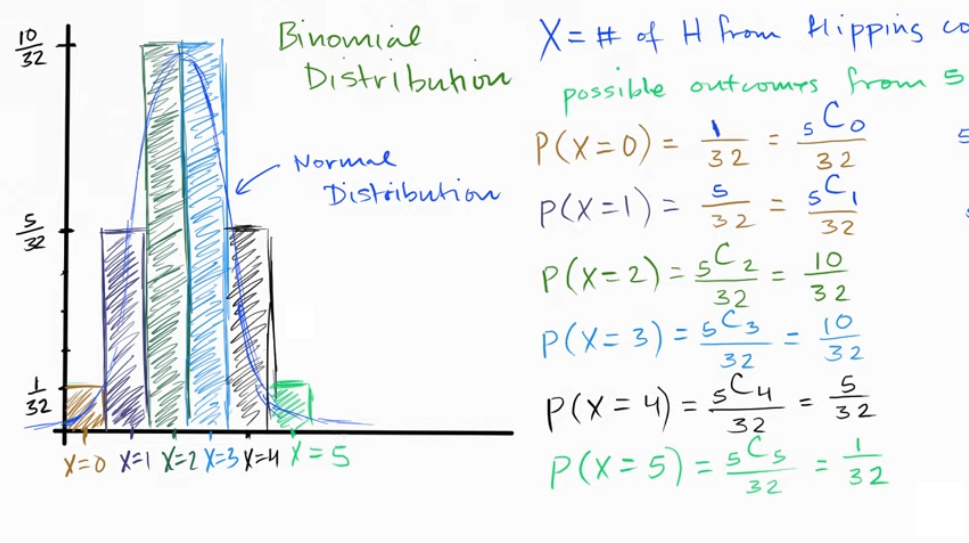 10/32
5/32
1/32
Binomial
Distribution
Normal
Distribution
X=0 X=1 X=2 X=3 X=4 X=5
X = # of H from flipping co
possible outcomes from 5
P(X=0) = 1/32 = ₅C₀/32
P(X=1) = 5/32 = ₅C₁/32
P(X=2) = ₅C₂/32 = 10/32
P(X=3) = ₅C₃/32 = 10/32
P(X=4) = ₅C₄/32 = 5/32
P(X=5) = ₅C₅/32 = 1/32
5